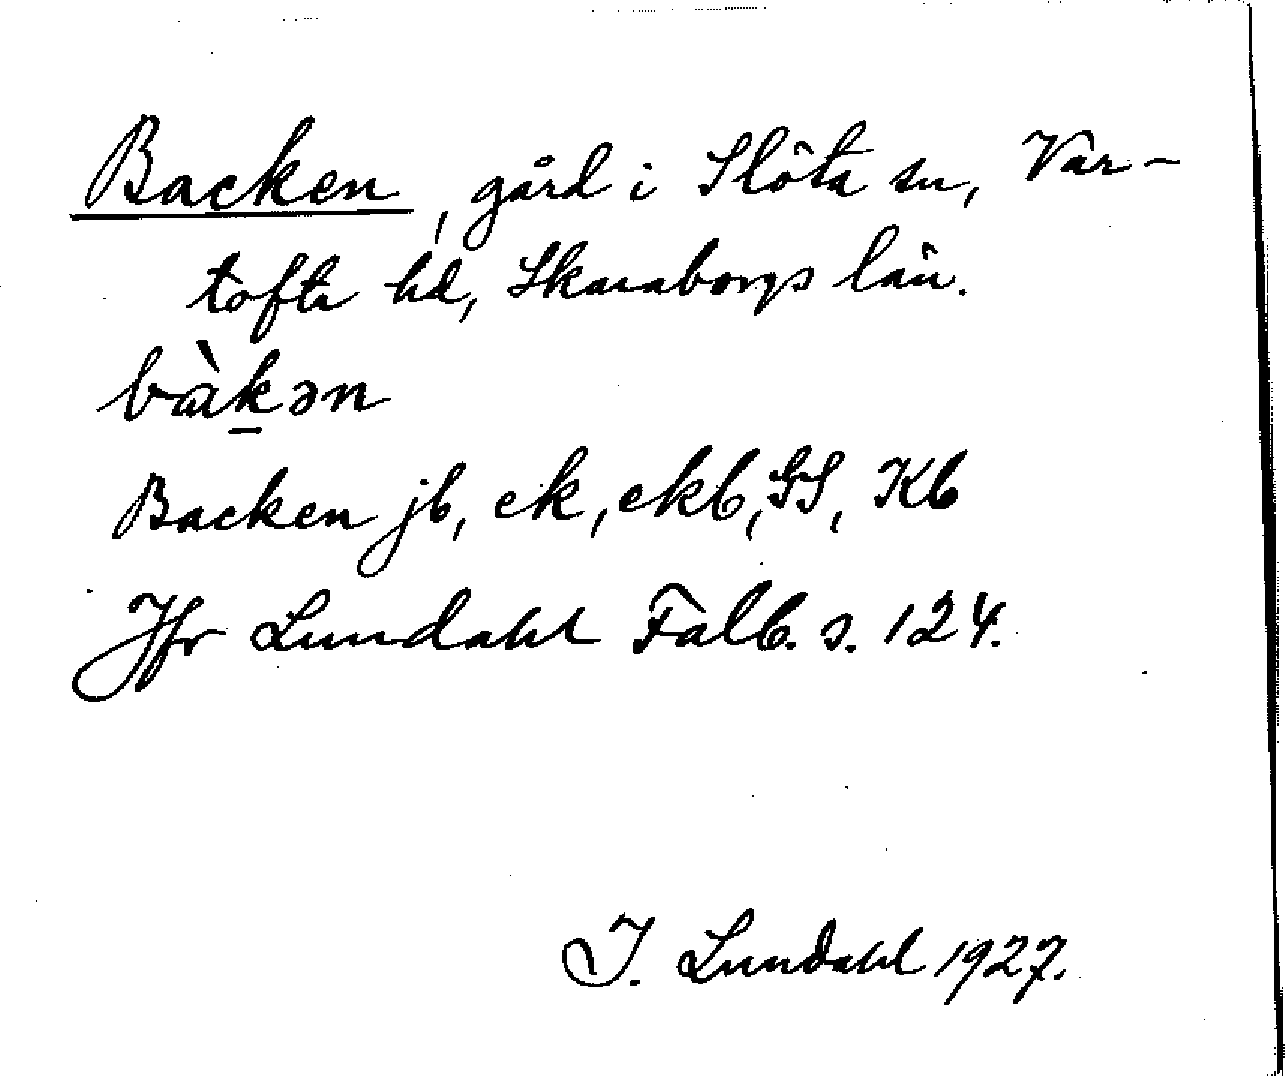 Backen, gård i Slöta sn, Var-
tofta hd, Skaraborgs län.
bàk̠ən
Backen jb, ek, ekb, GS, Kb
Jfr Lundahl Falb. s. 124.
I. Lundahl 1927.